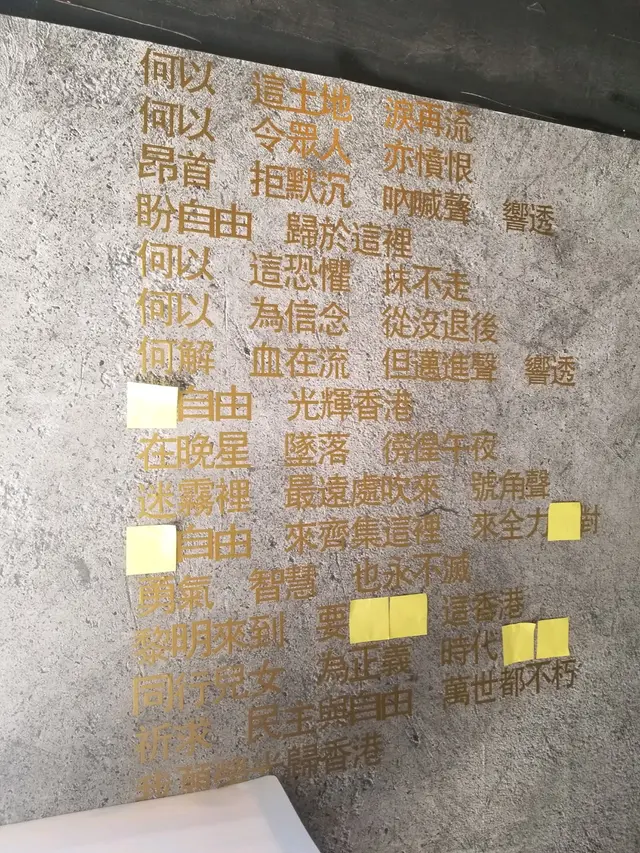 何以 這土地 淚再流
何以 令眾人 亦憤恨
昂首 拒默沉 吶喊聲 響透
盼自由 歸於這裡
何以 這恐懼 抹不走
何以 為信念 從沒退後
何解 血在流 但邁進聲 響透
自由 光輝香港
在晚星 墜落 徬徨午夜
迷霧裡 最遠處吹來 號角聲
自由 來齊集這裡 來全力 對
勇氣 智慧 也永不滅
黎明來到 要 這香港
同行兒女 為正義 時代
祈求 民主與自由 萬世都不朽
歸香港